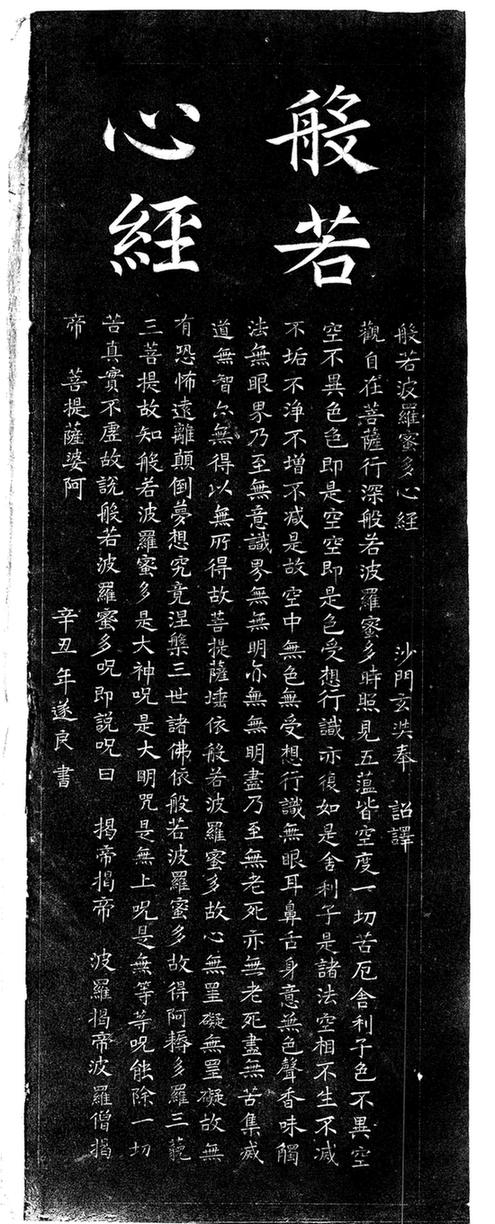 般若
心經
般若波羅蜜多心經 沙門玄洪奉 詔譯
觀自在菩薩行深般若波羅蜜多時照見五蕰皆空度一切苦厄舍利子色不異空
空不異色色即是空空即是色受想行識亦復如是舍利子是諸法空相不生不滅
不垢不淨不增不減是故空中無色無受想行識無眼耳鼻舌身意無色聲香味觸
法無眼界乃至無意識界無無明亦無無明盡乃至無老死亦無老死盡無苦集滅
道無智亦無得以無所得故菩提薩埵依般若波羅蜜多故心無罣礙無罣礙故無
有恐怖遠離顛倒夢想究竟涅槃三世諸佛依般若波羅蜜多故得阿耨多羅三藐
三菩提故知般若波羅蜜多是大神呪是大明咒是無上呪是無等等呪能除一切
苦真實不虛故說般若波羅蜜多呪即說呪曰 揭帝揭帝 波羅揭帝波羅僧揭
帝 菩提薩婆阿
辛丑年遂良書